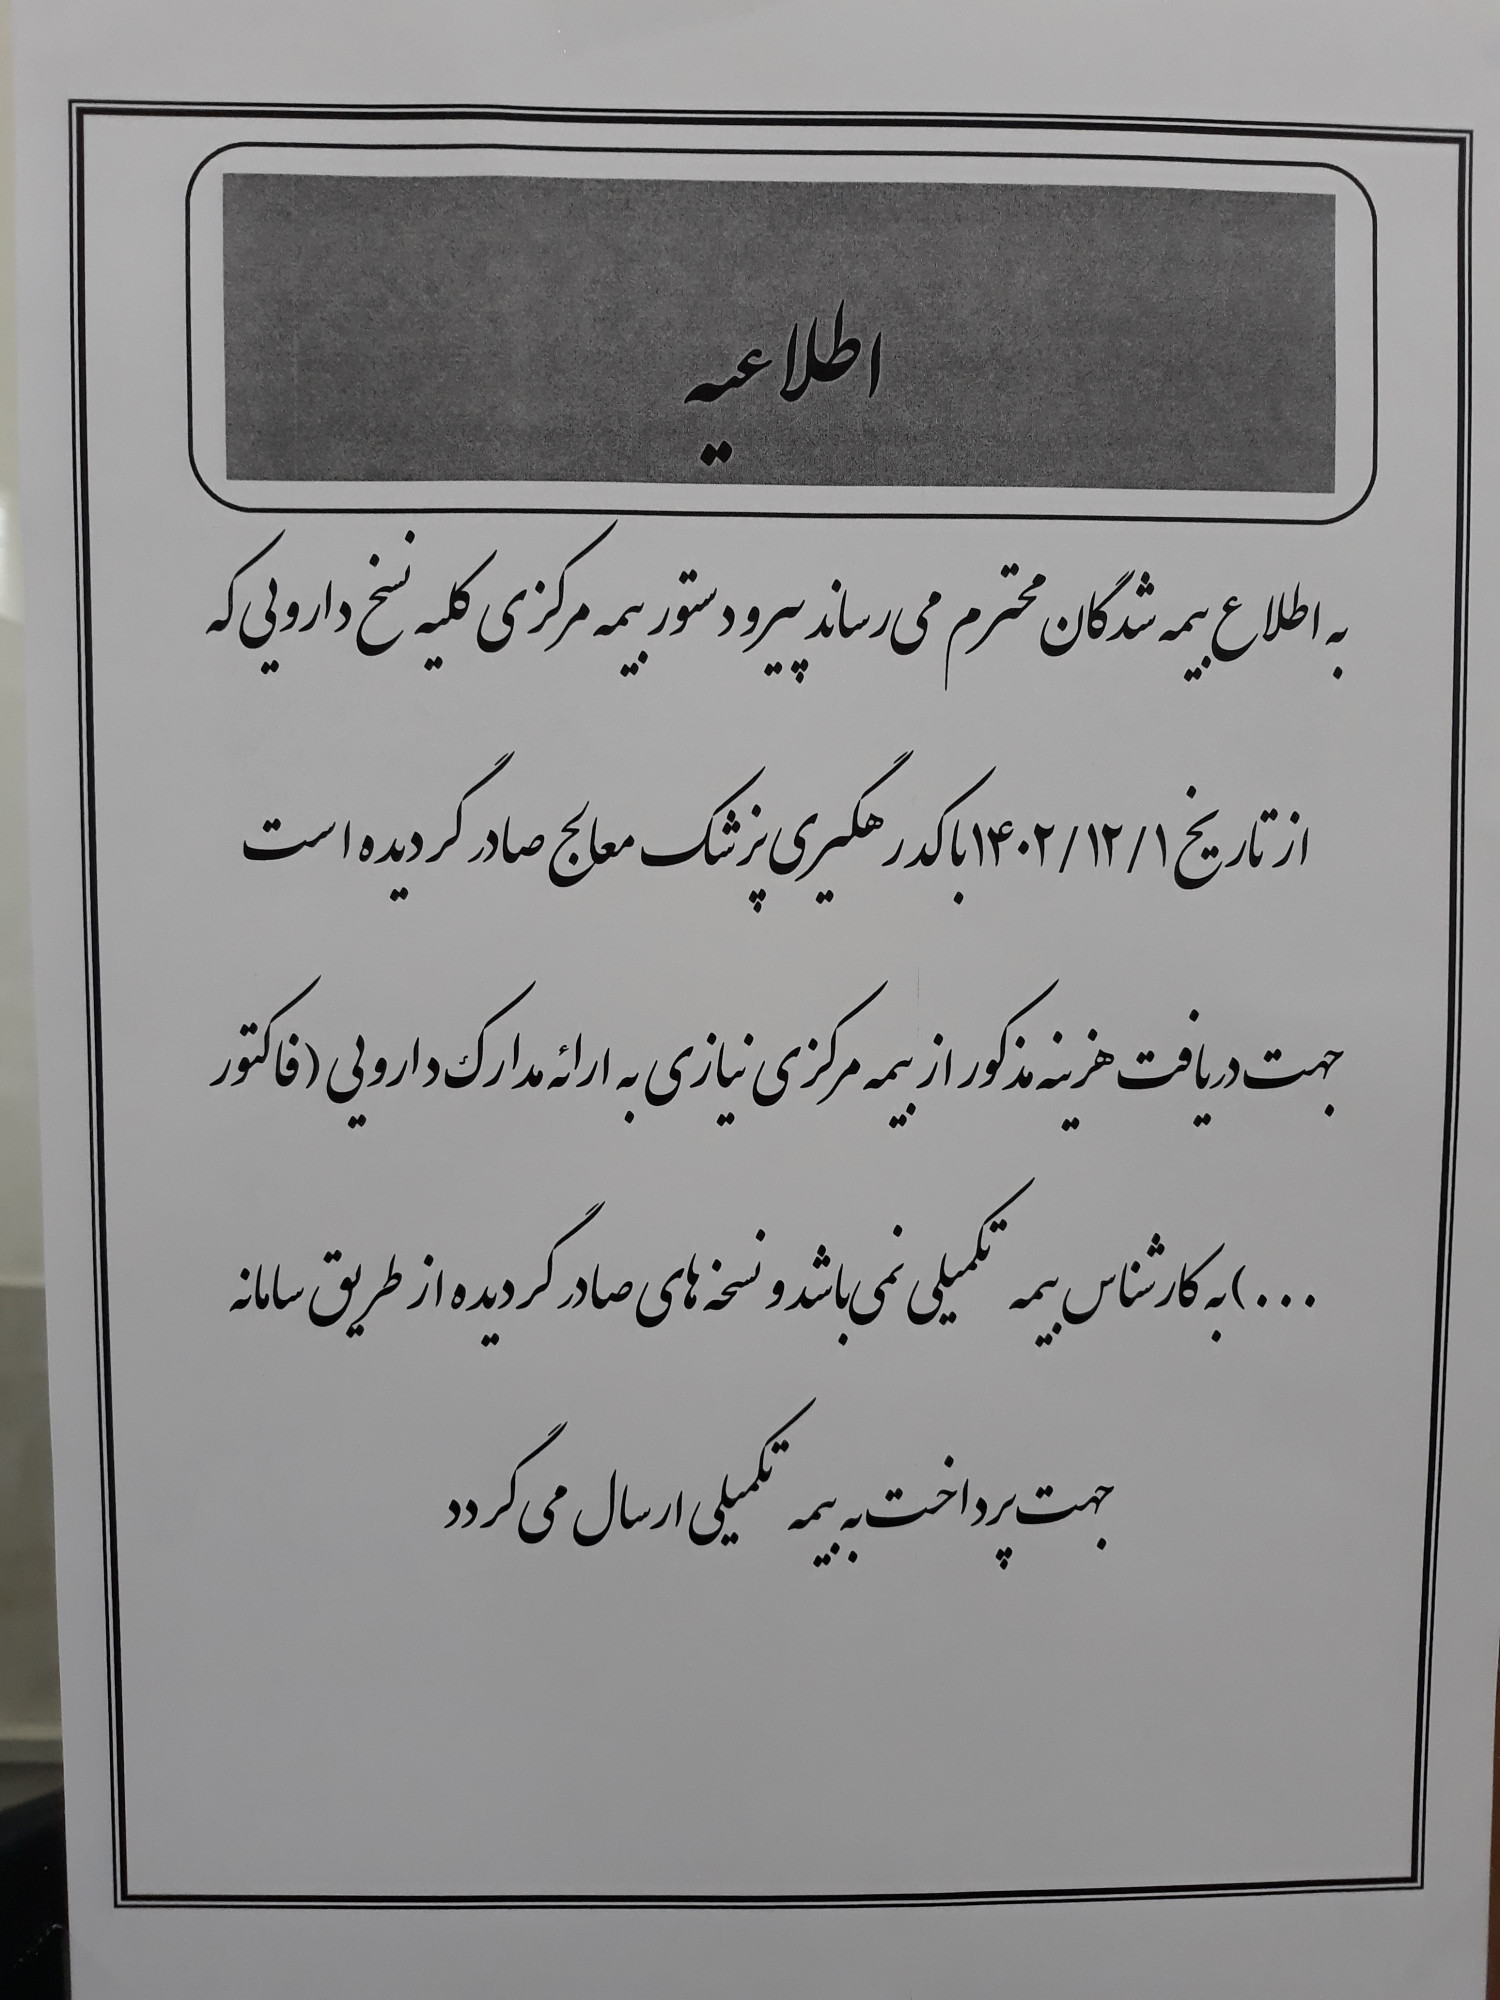 اطلاعیه
به اطلاع بیمه شدگان محترم می رساند پیرو دستور بیمه مرکزی کلیه نسخ دارویی که
از تاریخ ۱۴۰۲/۱۲/۱ با کد رهگیری پزشک معالج صادر گردیده است
جهت دریافت هزینه مذکور از بیمه مرکزی نیازی به ارائه مدارک دارویی (فاکتور
...) به کارشناس بیمه تکمیلی نمی باشد و نسخه های صادر گردیده از طریق سامانه
جهت پرداخت به بیمه تکمیلی ارسال می گردد